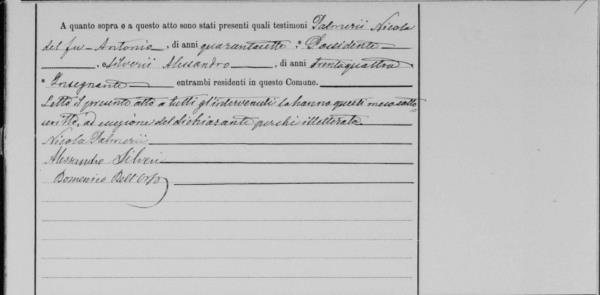 A quanto sopra e a questo atto sono stati presenti quali testimoni Palmerii Nicola
del fu Antonio, di anni quarantasette, Possidente
, Silverii Alessandro, di anni trentaquattro
Insegnante entrambi residenti in questo Comune.
Letto il presente atto a tutti gl'intervenuti lo hanno questi meco sotto
scritto, ad eccezione del dichiarante perchè illetterato
Nicola Palmerii
Alessandro Silverii
Domenico Dell'